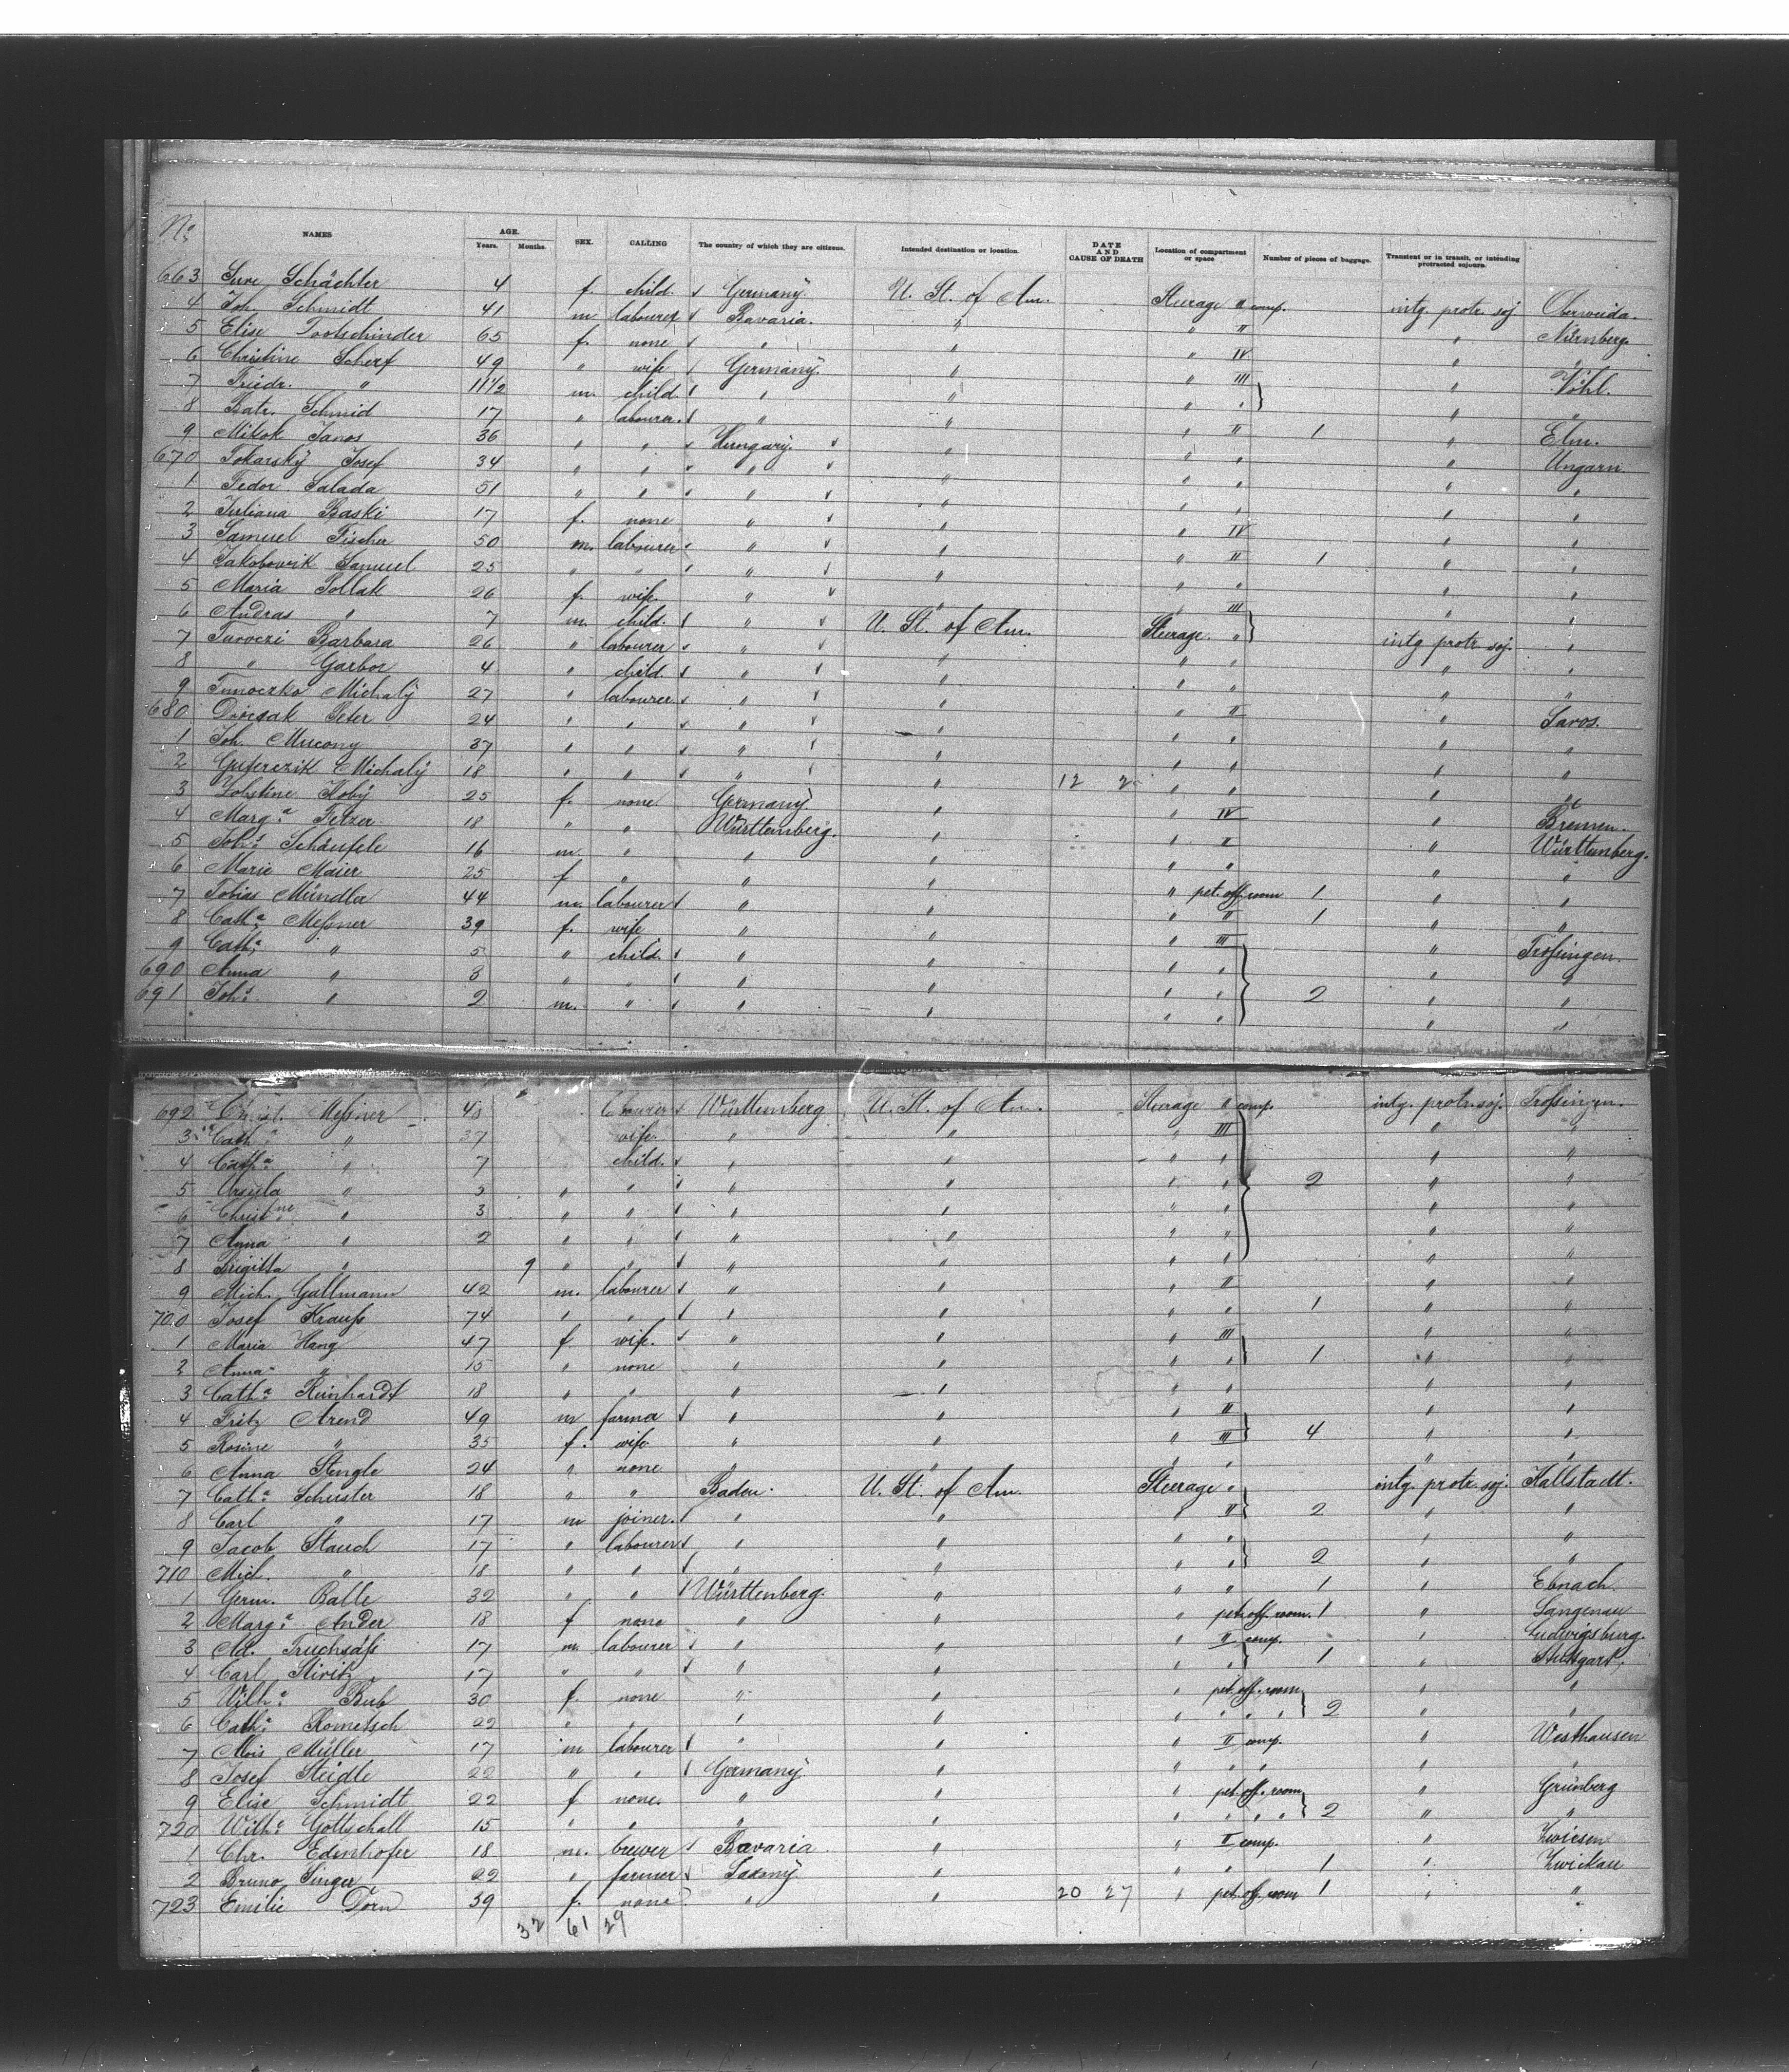 No. NAMES AGE. Years. Months. SEX. CALLING The country of which they are citizens. Intended destination or location. DATE AND CAUSE OF DEATH Location of compartment or space Number of pieces of baggage. Transient or in transit, or intending protracted sojourn.
663 Schächter 4 f. child. Germany. U. St. of Am. Steerage II comp. intg. protr. soj
4 Joh. Schmidt 41 m labourer Bavaria. " " II " Nürnberg.
5 Elise 65 f. none " " " IV " "
6 Christine Scherf 49 " wife Germany. " " III " Vöhl.
7 Friedr. " 11 1/2 m. child " " " " " "
8 Schmid 17 " labourer. " " " II 1 " Elm.
9 Mikok Janos 36 " " Hungary. " " " " Ungarn.
670 Tokarsky Josef 34 " " " " " " " "
1 Fedor Salada 51 " " " " " " " "
2 Juliana Baski 17 f. none " " " IV " "
3 Samuel Fischer 50 m. labourer " " " II 1 " "
4 Jakobovik Samuel 25 " " " " " " " "
5 Maria Pollak 26 f. wife " " " III " "
6 Andras " 7 m. child. " U. St. of Am. Steerage " intg protr. soj. "
7 Turoczi Barbara 26 " labourer " " " " " "
8 " Garbor 4 " child " " " " " "
9 Michalÿ 27 " labourer " " " II " Saros.
680 Peter 24 " " " " " " " "
1 Joh. Mucony 37 " " " " " " " "
2 Michalÿ 18 " " " " 12 2 " " " "
3 Koby 25 f. none Germany " " IV " Bremen.
4 Marga. Fetzer 18 " " Württemberg. " " II " Württemberg.
5 Johs. Schäufele 16 m. " " " " " " "
6 Marie Maier 25 f " " " " pet. off. room 1 " "
7 Tobias Mündler 44 m. labourer " " " II 1 " "
8 Catha. Meßner 39 f. wife " " " III " Troßingen.
9 Catha. " 5 " child. " " " " " "
690 Anna " 3 " " " " " " 2 " "
691 Johs. " 2 m. " " " " " " "
692 Christ. Meßner 48 labourer Württemberg U. St. of Am. Steerage II comp. intg. protr. soj. Troßingen.
3 Catha. " 37 wife " " " III " "
4 Catha. " 7 child. " " " " " "
5 Ursula " " " " " " " 2 " "
6 Christne. " 3 " " " " " " " "
7 Anna " 2 " " " " " " " "
8 Brigitta " 9 " " " " " " " "
9 Mich. Gallmann 42 m. labourer " " " II " "
700 Josef Krauß 74 " " " " " " 1 " "
1 Maria Haug 47 f wife. " " " III " "
2 Anna " 15 " none " " " " 1 " "
3 Catha. Reinhardt 18 " " " " " " " "
4 Fritz Arend 49 m farmer " " " II " "
5 Rosine " 35 f. wife " " " III 4 " "
6 Anna Stengle 24 " none " " " " " "
7 Catha. Schuster 18 " " Baden. U. St. of Am. Steerage " intg. protr. soj. Hallstadt.
8 Carl " 17 m joiner. " " " II 2 " "
9 Jacob Stauch 17 " labourer " " " " " "
710 Mich. " 18 " " " " " " 2 " "
1 Germ. Balle 32 " " Württenberg. " " " 1 " Ebnach.
2 Marga. Ander 18 f none " " " pet. off. room. 1 " Langenau
3 Ad. Truchsäß 17 m labourer " " " II comp. " Ludwigsburg.
4 Carl 17 " " " " " " 1 " Stuttgart.
5 Wilha. Bub 30 f. none " " " pet. off. room " "
6 Catha. Rometsch 22 " " " " " " " " 2 " "
7 Alois Müller 17 m labourer " " " II comp. " Westhausen
8 Josef Steidle 22 " " Germany. " " " " " "
9 Elise Schmidt 22 f none. " " " pet. off. room " Grünberg
720 Wilha. Gottschall 15 " " " " " " " " 2 " "
1 Chr. Edenhofer 18 m. brewer Bavaria. " " II comp. " Zwiesen
2 Bruno Singer 22 " farmer Saxony. " " " 1 " Zwickau
723 Emilie Dorn 39 f. none " " 20 27 " pet. off. room 1 " "
32 61 29